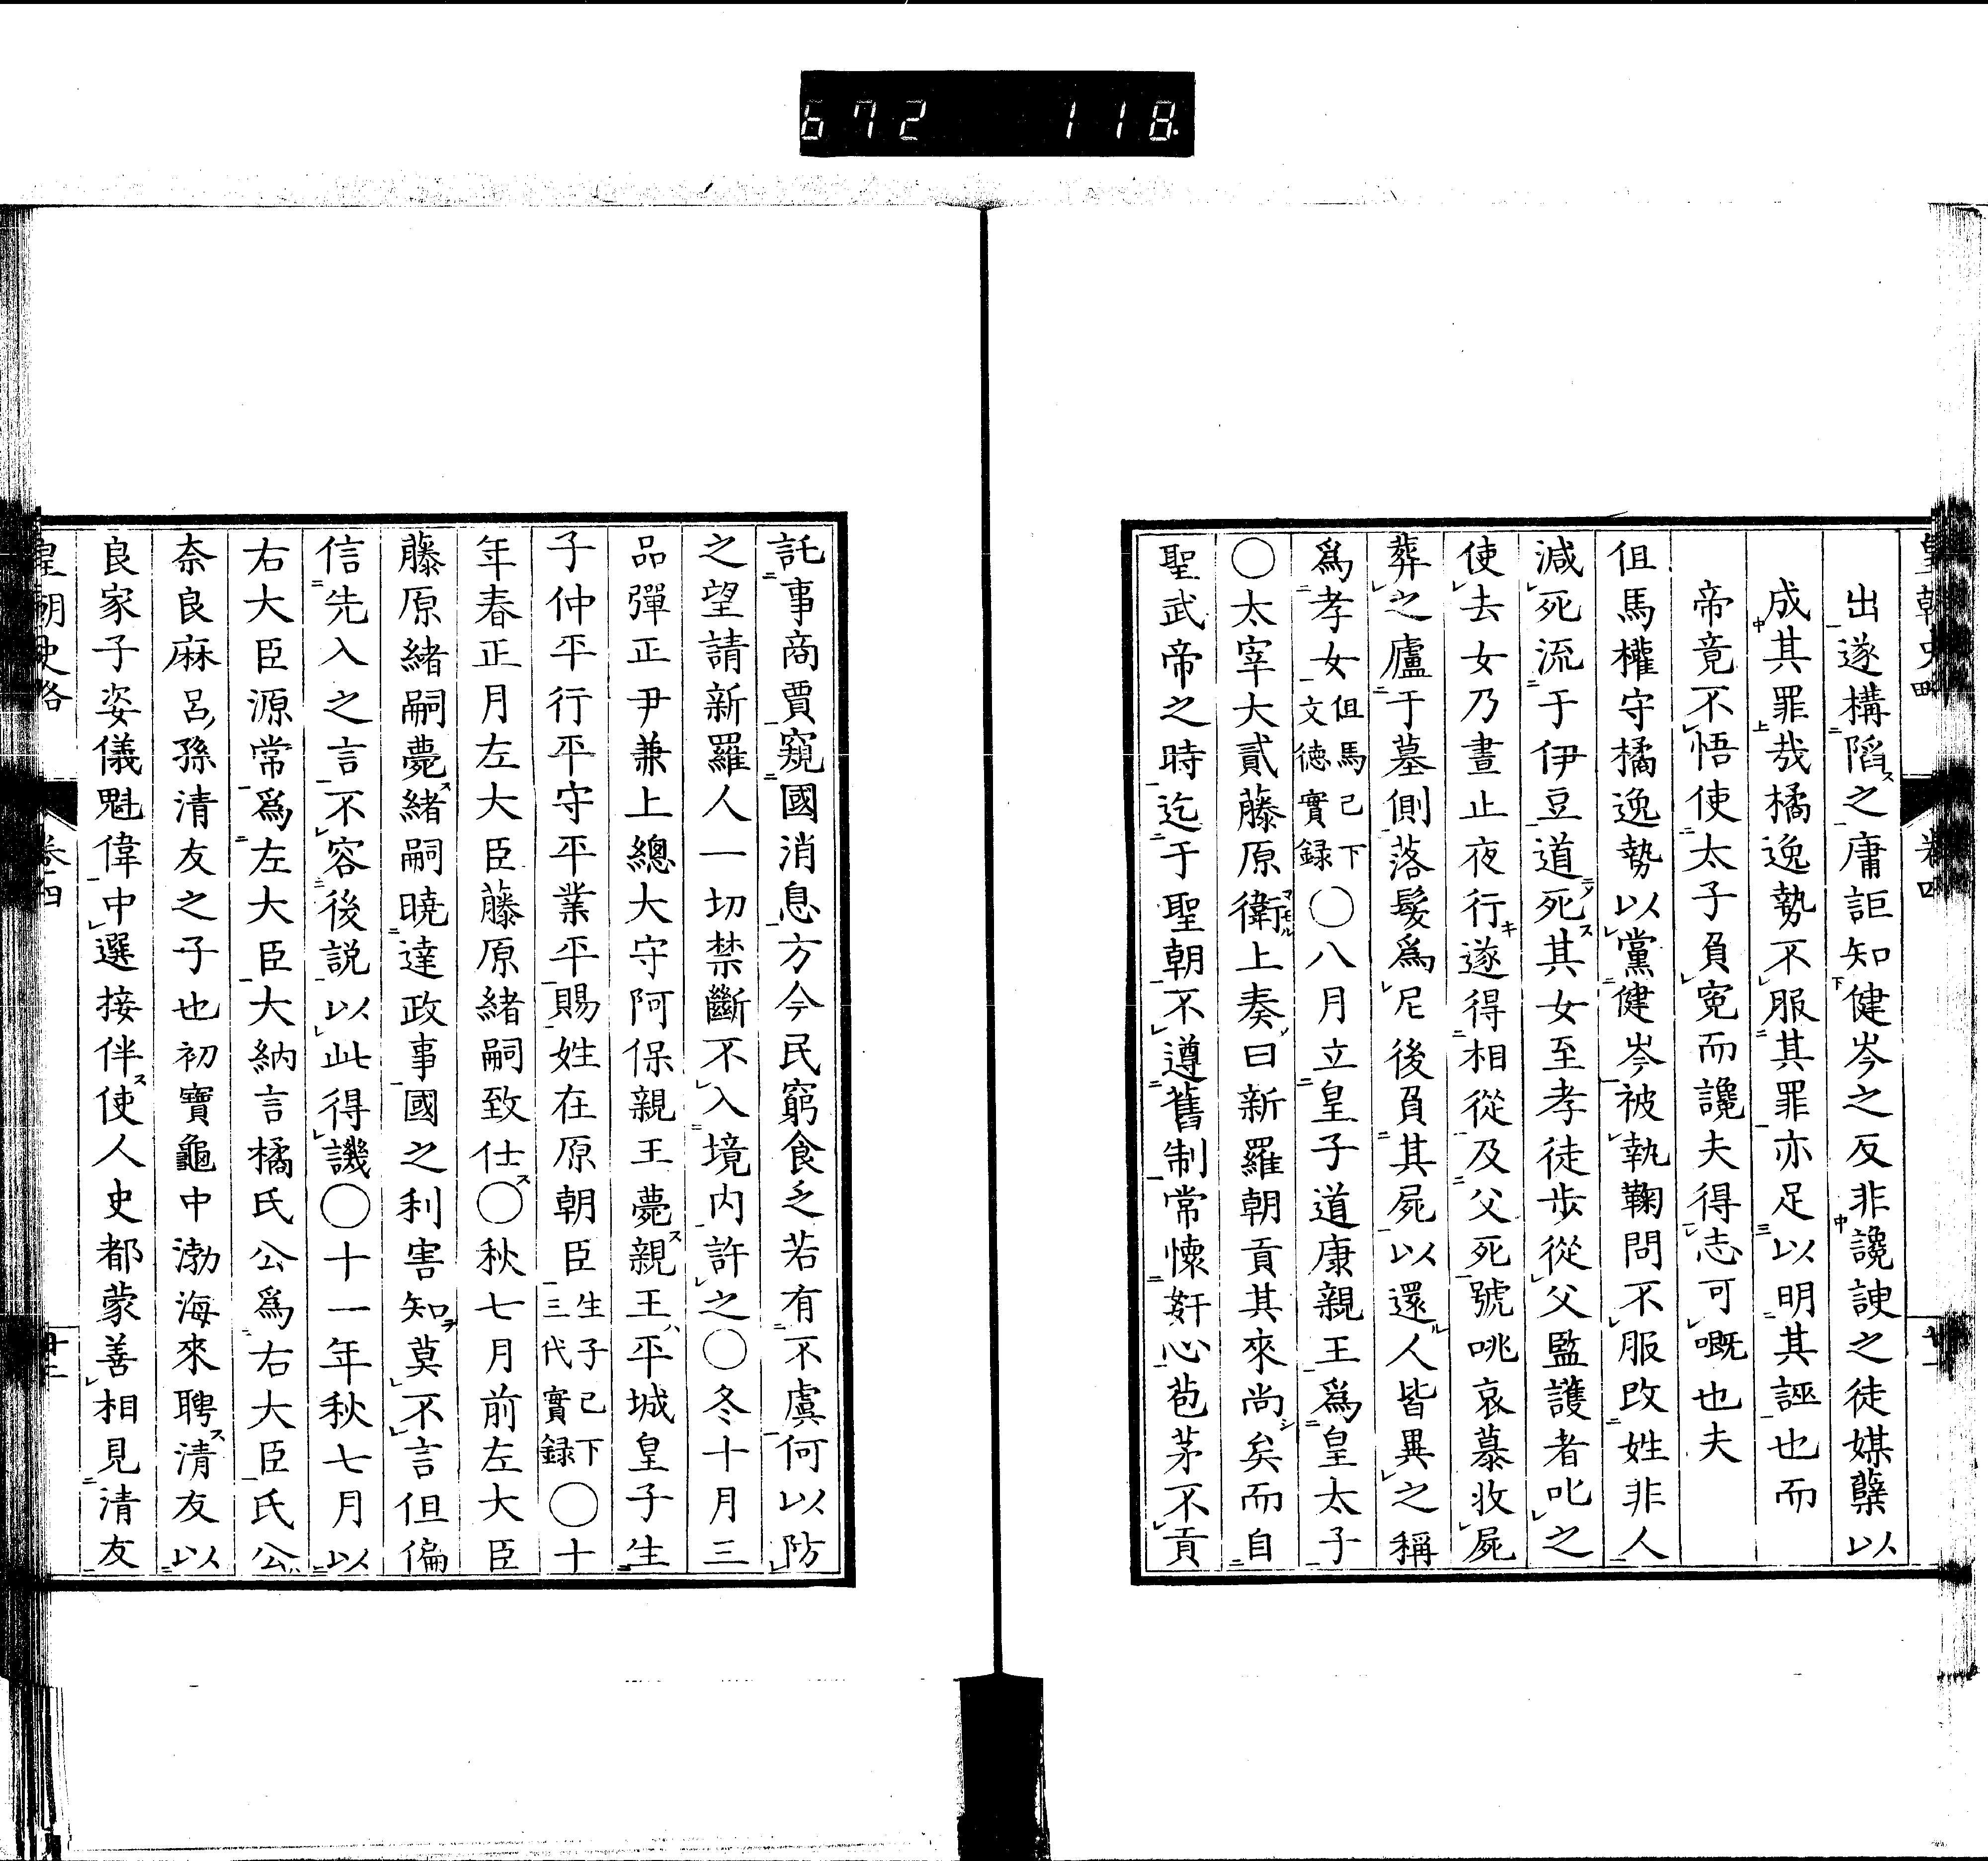 672 118
皇朝史略 卷四
出遂構陷之庸詎知健岑之反非讒諛之徒媒糵以
成其罪哉橘逸勢不服其罪亦足以明其誣也而
帝竟不悟使太子負寃而讒夫得志可嘅也夫
但馬權守橘逸勢以黨健岑被執鞠問不服改姓非人
減死流于伊豆道死其女至孝徒歩從父監護者叱之
使去女乃晝止夜行遂得相從及父死號咷哀慕收屍
葬之廬于墓側落髮爲尼後負其屍以還人皆異之稱
爲孝女但馬已下文德實録〇八月立皇子道康親王爲皇太子
〇太宰大貳藤原衛上奏曰新羅朝貢其來尚矣而自
聖武帝之時迄于聖朝不遵舊制常懷奸心苞茅不貢
託事商賈窺國消息方今民窮食乏若有不虞何以防
之望請新羅人一切禁斷不入境内許之〇冬十月三
品彈正尹兼上總大守阿保親王薨親王平城皇子生
子仲平行平守平業平賜姓在原朝臣生子已下三代實録〇十
年春正月左大臣藤原緒嗣致仕〇秋七月前左大臣
藤原緒嗣薨緒嗣曉達政事國之利害知莫不言但偏
信先入之言不容後説以此得譏〇十一年秋七月以
右大臣源常爲左大臣大納言橘氏公爲右大臣氏公
奈良麻呂孫清友之子也初寶龜中渤海來聘清友以
良家子姿儀魁偉中選接伴使人史都蒙善相見清友
皇朝史略 卷四 廿二